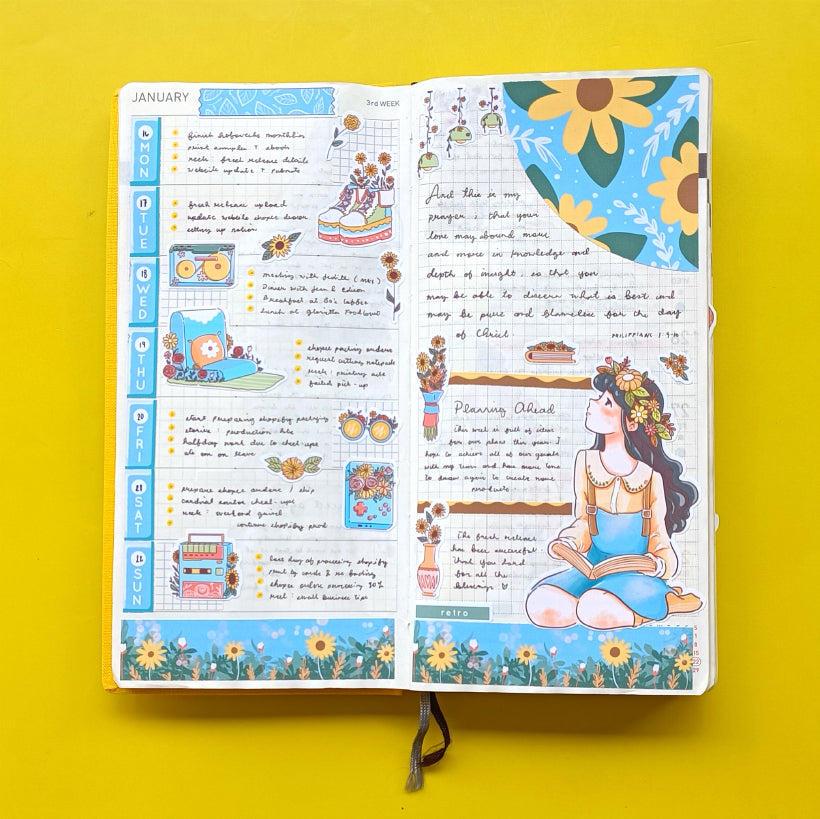 JANUARY
3rd WEEK
16 MON
finish
print samples + ebook
reels : fresh release details
website update + submit
17 TUE
fresh release upload
update website shopee design
setting up notion
18 WED
meeting with
Dinner with Jean & Edison
Breakfast at Bo's Coffee
Lunch at Glorietta Foodcourt
19 THU
shopee packing orders
request cutting notepads
reels : printing
failed pick-up
20 FRI
start preparing shopify packaging
stories : production
halfday work due to check-ups
ate em on leave
21 SAT
prepare shopee orders / ship
cardinal santos check-ups
reels : weekend
continue shopify prod
22 SUN
last day of processing shopify
print ty cards &
shopee orders processing 30%
reel : small business tips
And this is my
prayer : that your
love may abound more
and more in knowledge and
depth of insight, so that you
may be able to discern what is best and
may be pure and blameless for the day
of Christ.
PHILIPPIANS 1:9-10
Planning Ahead
This week is full of ideas
for our plans this year. I
hope to achieve all of our goals
with my team and have more time
to draw again to create more
products.
The fresh release
has been successful
thank you Lord
for all the
blessings
retro
5
1
8
15
22
29